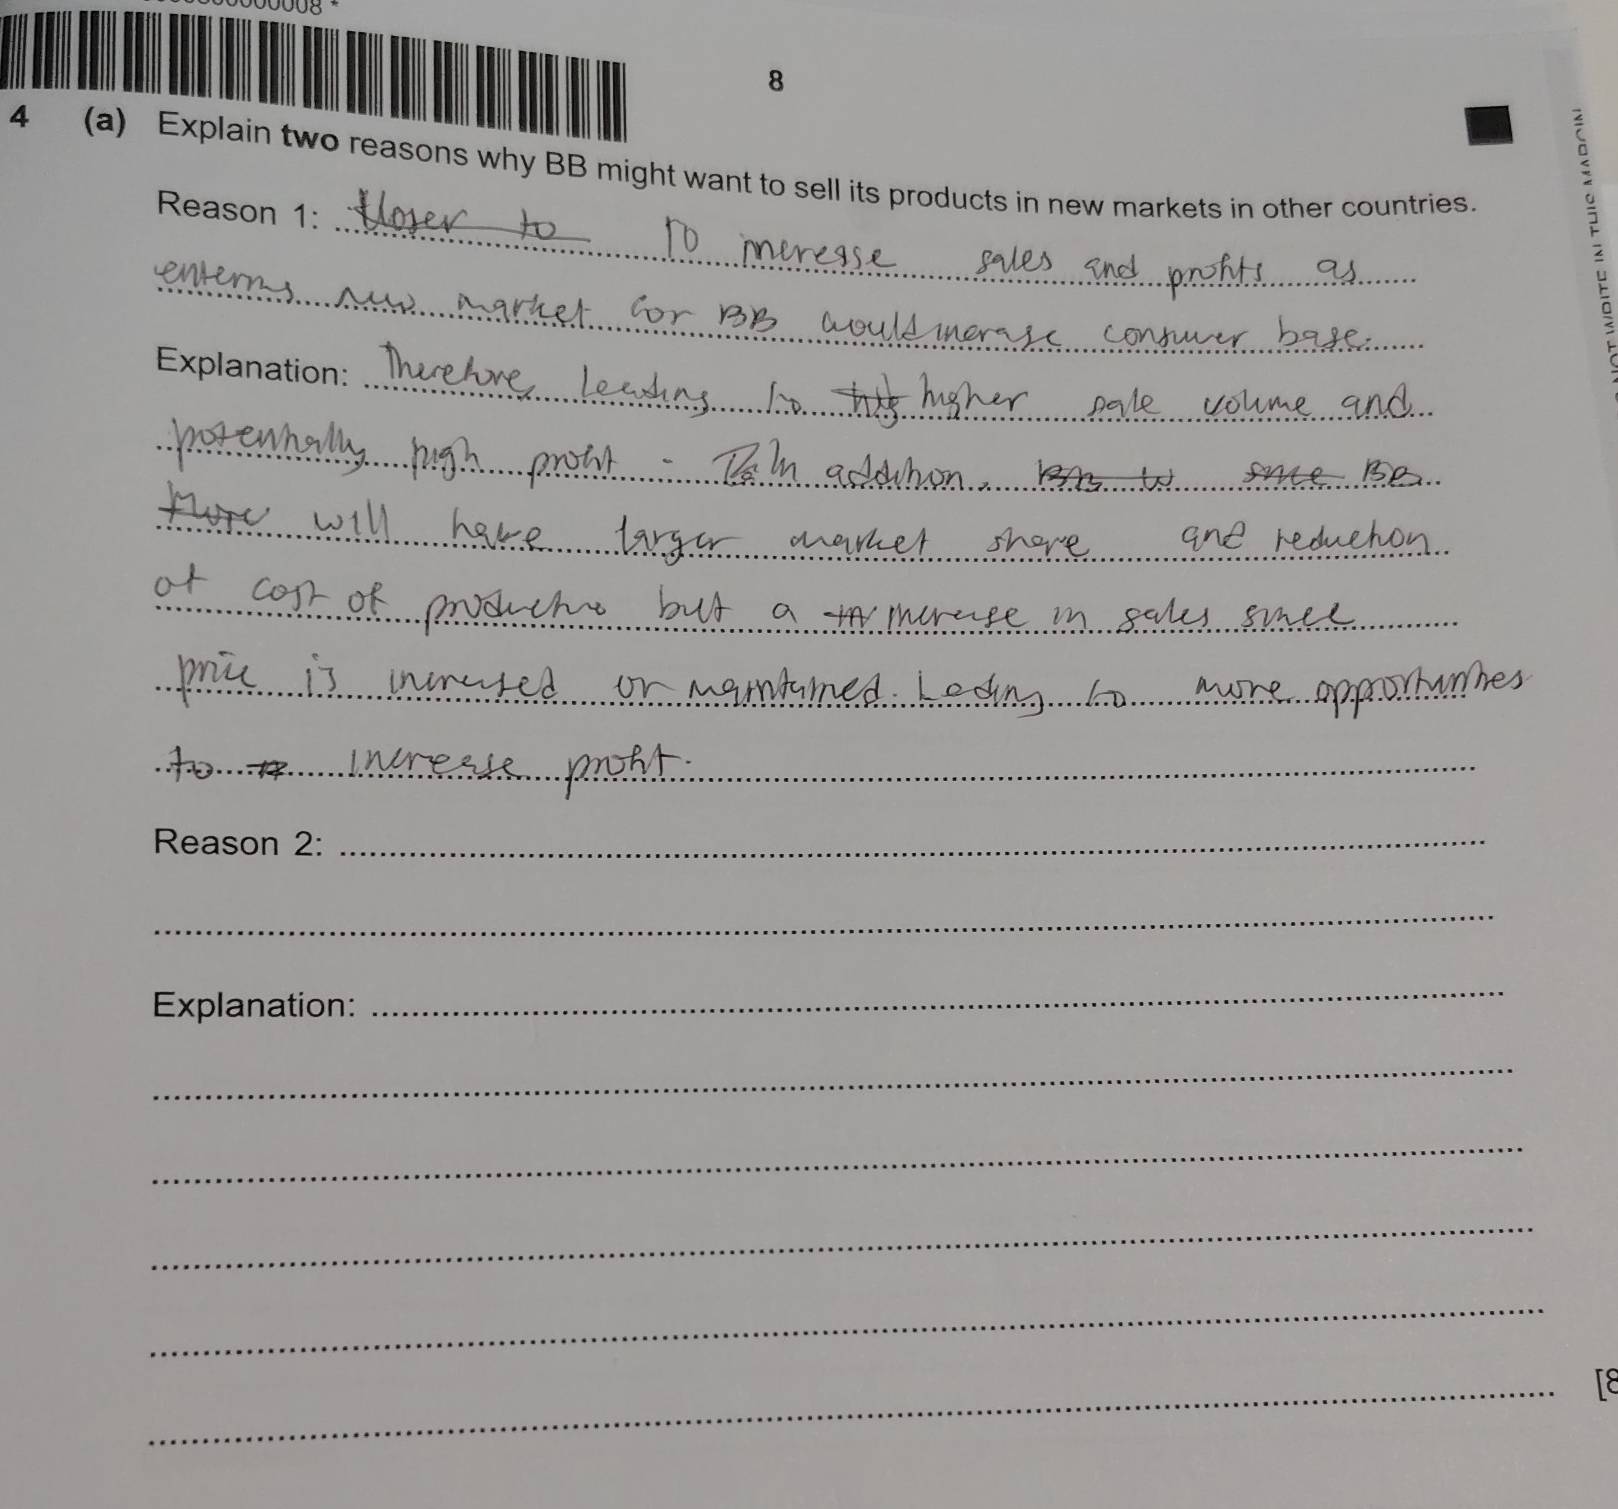 0000000008 *
8
4 (a) Explain two reasons why BB might want to sell its products in new markets in other countries.
Reason 1: Closer to To increase sales and profits as
entering new market for BB would increase consumer base.
Explanation: Therefore, leading to higher sale volume and
potentially high profit. In addition, BB to since BB
More will have larger market share and reduction
of cost of production but a increase in sales since
price is increased or maintained. Leding to more opportunities
to increase profit.
Reason 2:
Explanation:
[8
NOT WRITE IN THIS MARGIN